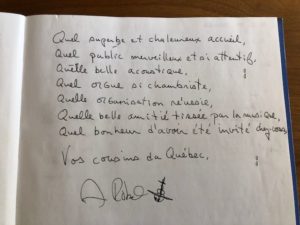 Quel superbe et chaleureux accueil,
Quel public merveilleux et si attentif,
Quelle belle acoustique,
Quel orgue si chambriste,
Quelle organisation réussie,
Quelle belle amitié tissée par la musique,
Quel bonheur d'avoir été invité chez vous,
Vos cousins du Québec,